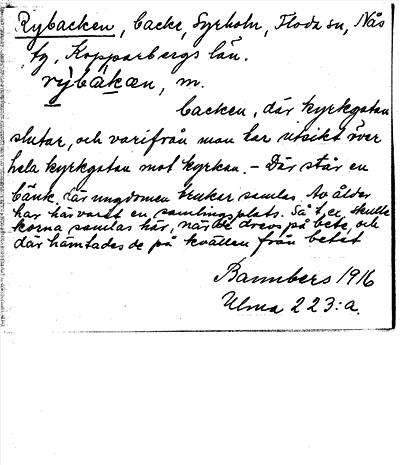 Rybacken, backe, Syrholn, Floda sn, Nås
tg, Kopparbergs län.
rỳbákæn, m.
backen, där kyrkgatan
slutar, och varifrån man har utsikt över
hela kyrkgatan mot kyrkan. – Där står en
bänk, där ungdomen brukar samlas. Av ålder
har här varit en samlingsplats. Så t. ex. skulle
korna samlas här, när de drevos på bete, och
där hämtades de på kvällen från betet
Bannbers 1916
Ulma 223:a.